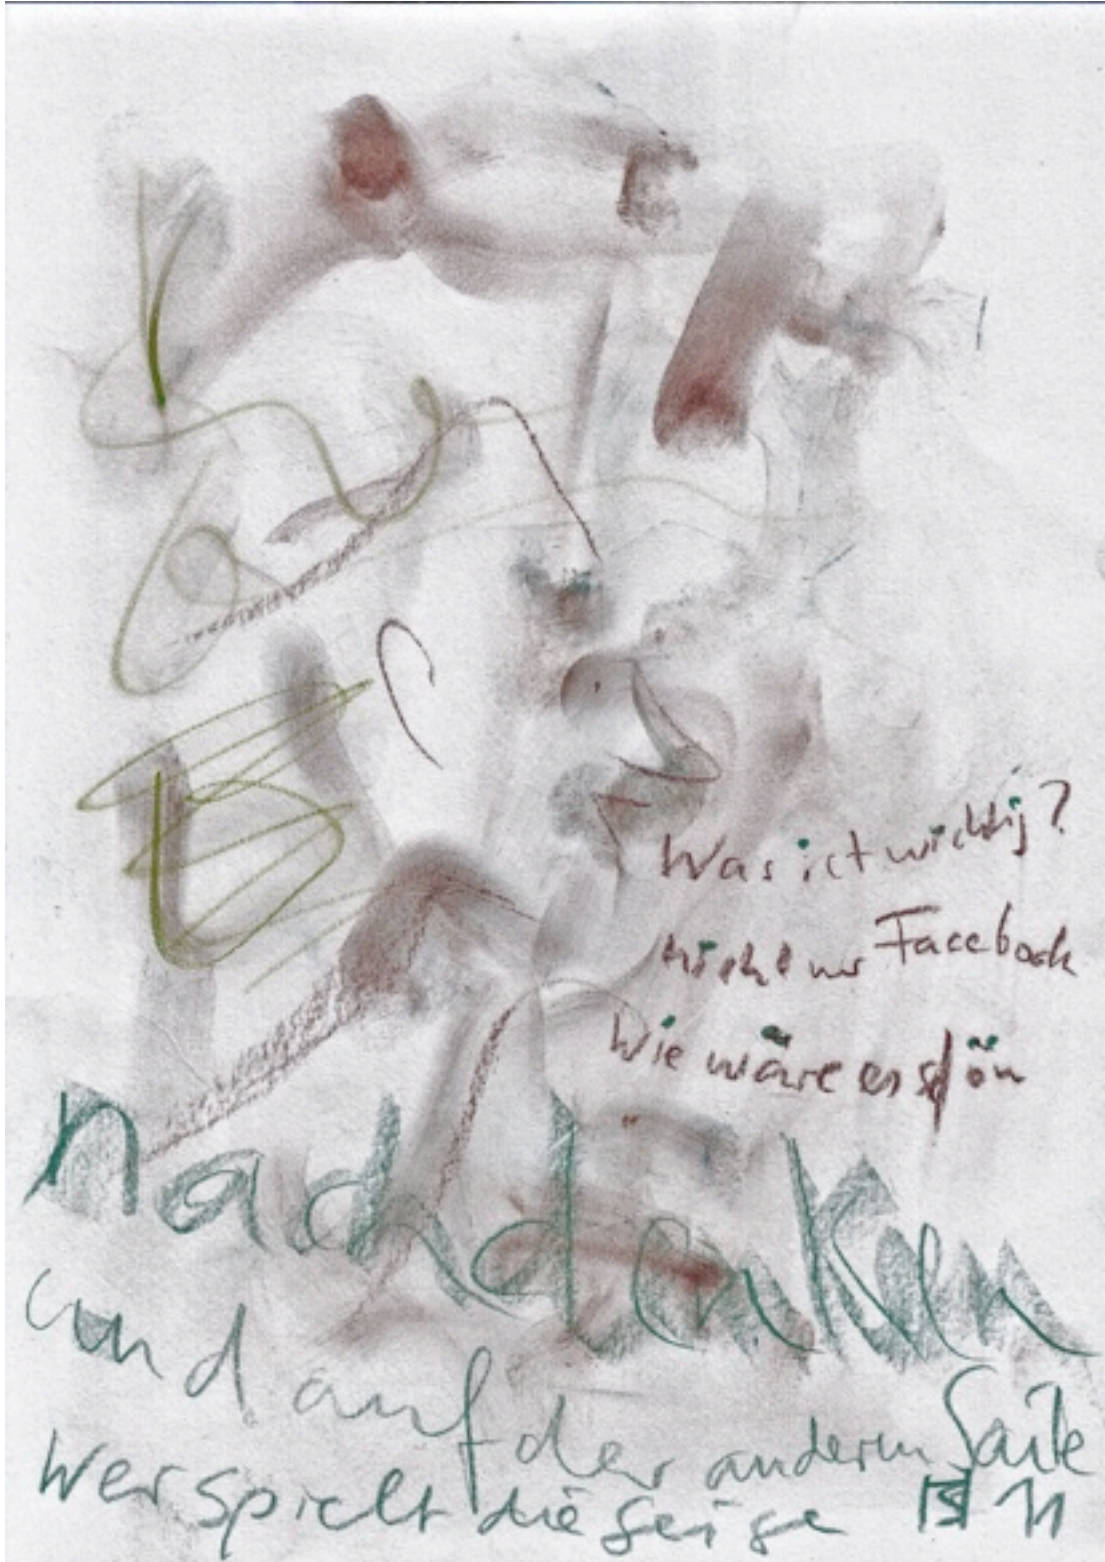 Was ist wichtig?
nicht nur Facebook
Wie wäre es schön
nachdenken
und auf der anderen Saite
Wer spielt die Geige 11